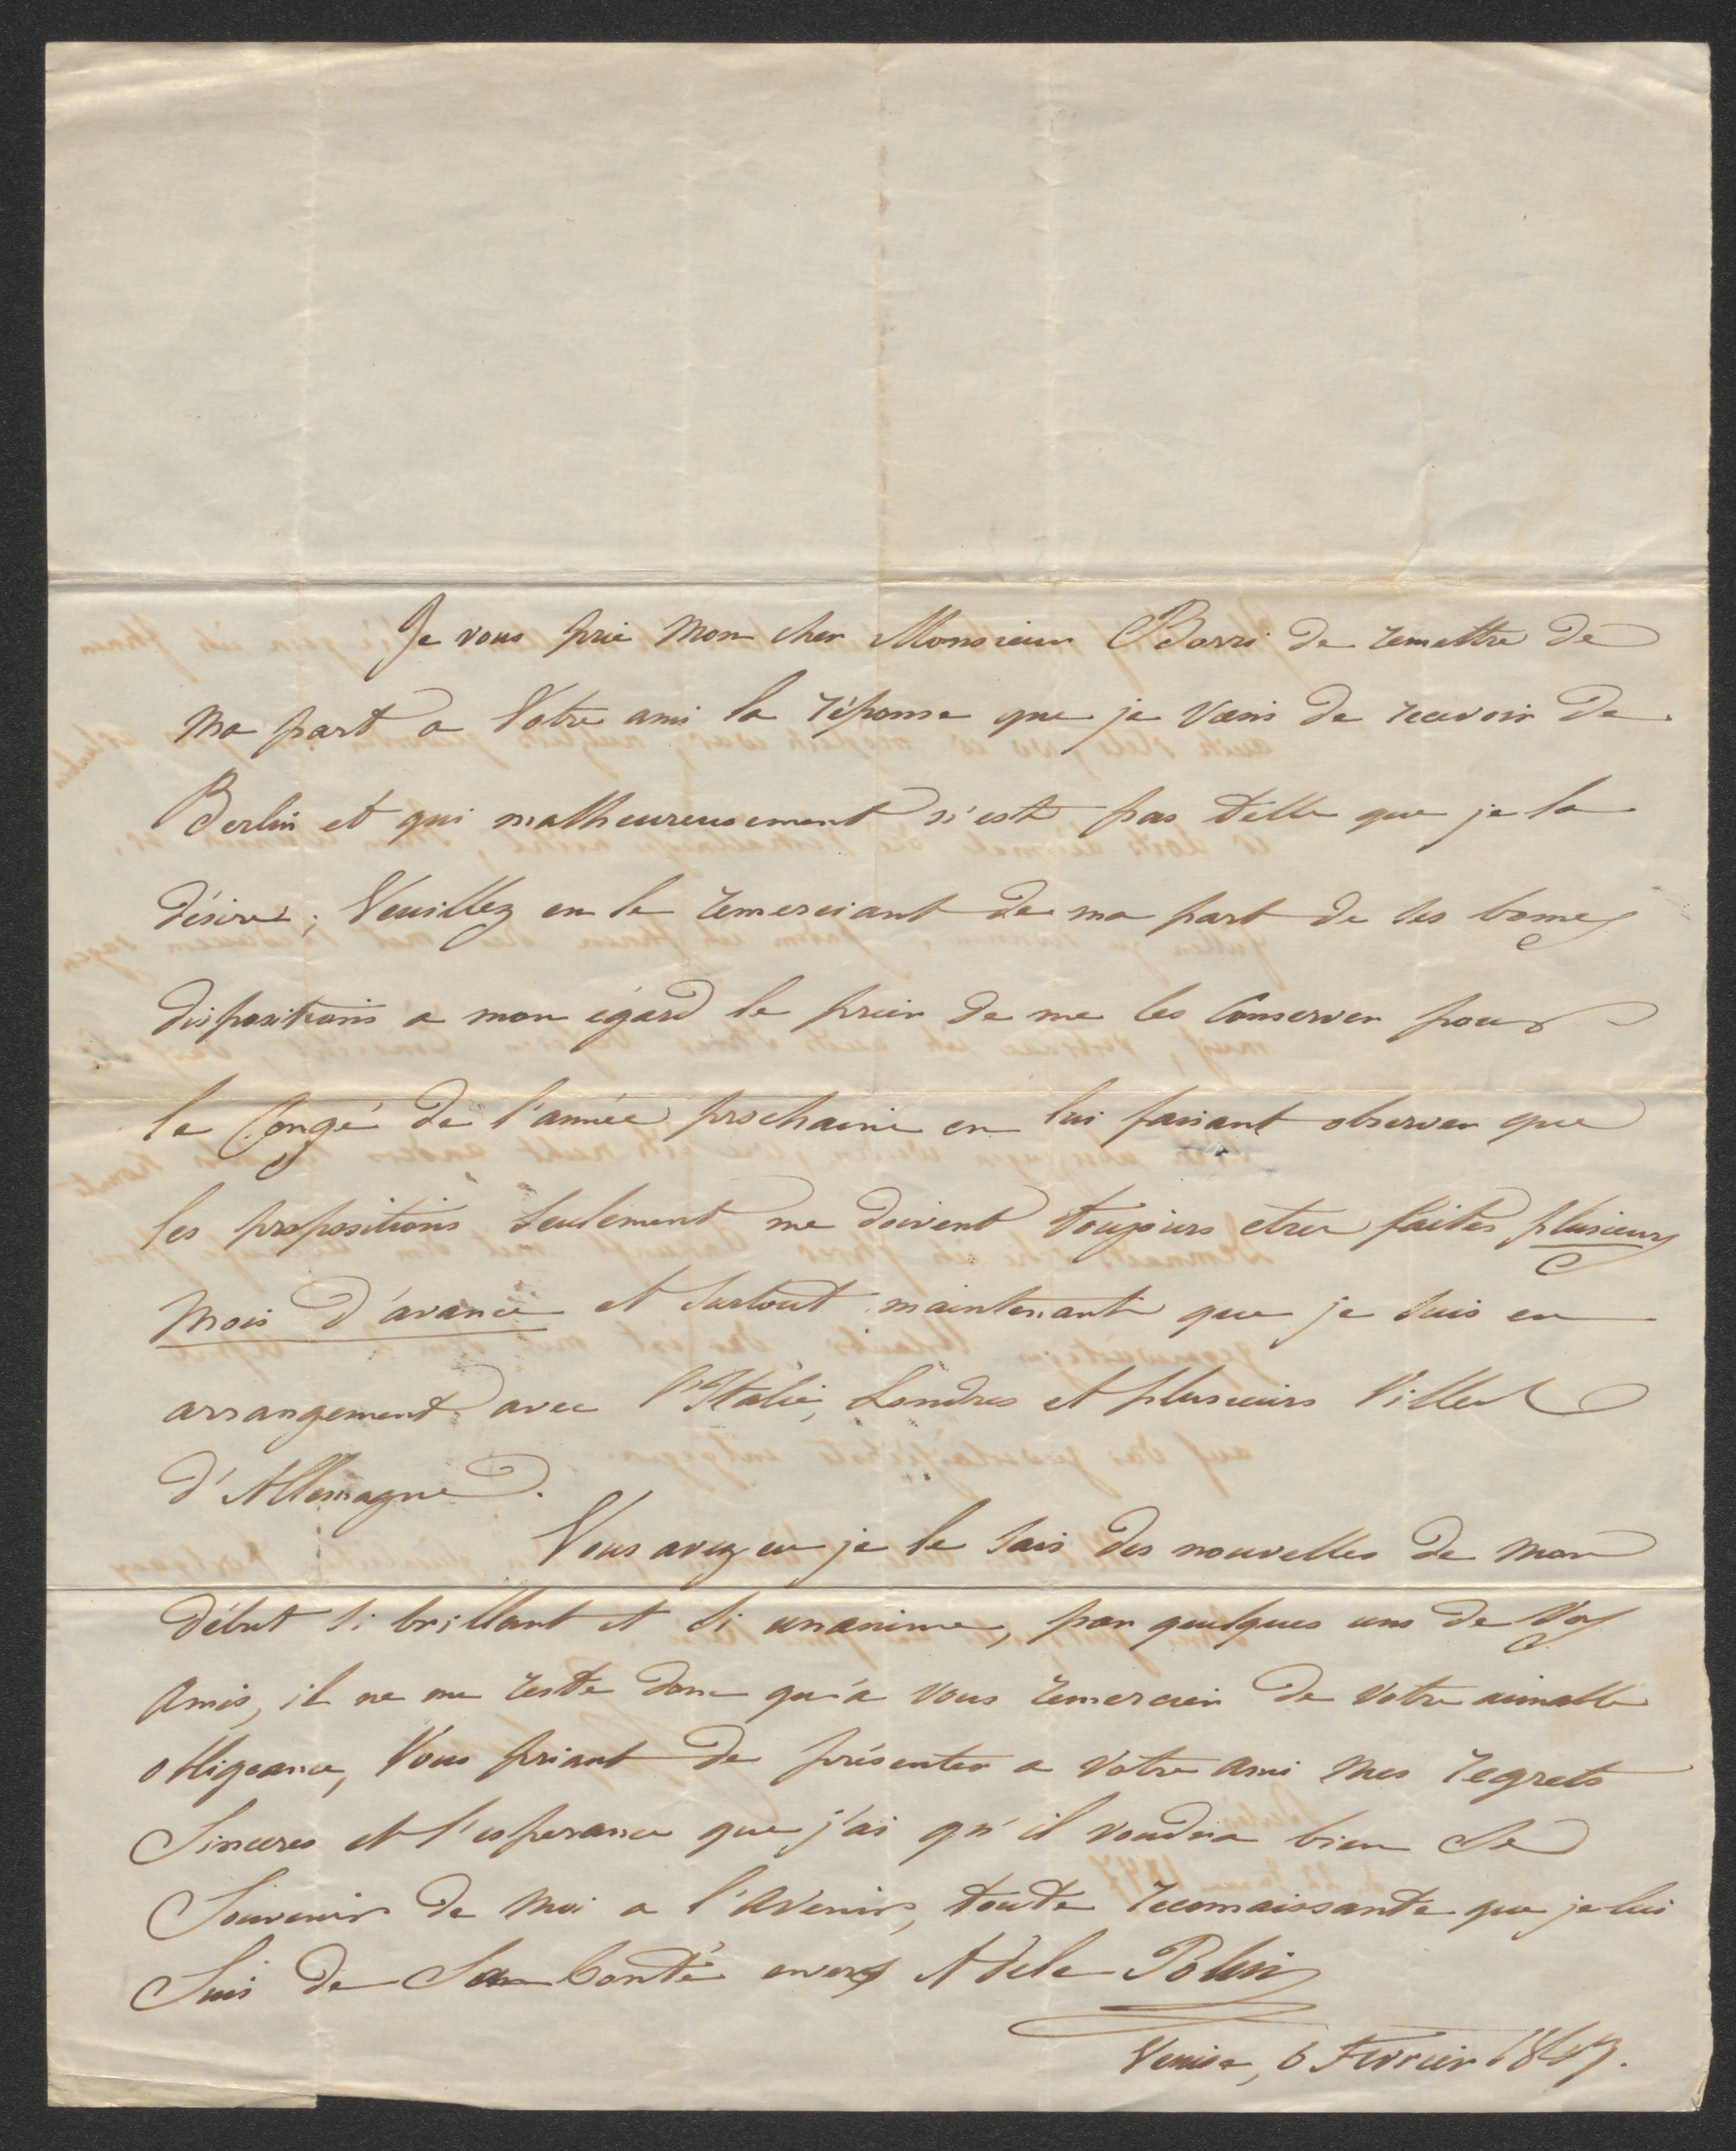 Je vous prie Mon cher Monsieur Borri de remettre de
Ma part a Votre ami la réponse que je Viens de recevoir de
Berlin et qui malheureusement n'est pas telle que je la
désire; Veuillez en le remerciant de ma part de ses bonnes
dispositions a mon égard le prier de me les Conserver pour
le Congé de l'année prochaine en lui faisant observer que
les propositions seulement me doivent toujours etre faites plusieurs
Mois d'avance et surtout maintenant que je suis en
arrangement avec l'Italie, Londres et plusieurs Villes
d'Allemagne.
Vous avez eu je le sais des nouvelles de mon
début si brillant et si unanime, par quelques uns de Vos
Amis, il ne me reste donc qu'a Vous remercier de Votre aimable
obligeance, Vous priant de présenter a Votre Ami Mes regrets
Sinceres et l'esperance que j'ai qu'il voudra bien Se
Souvenir de Moi a l'Avenir, toute reconnaissante que je lui
Suis de Sa bonté envers Adele Polin
Venise, 6 Fevrier 1847.